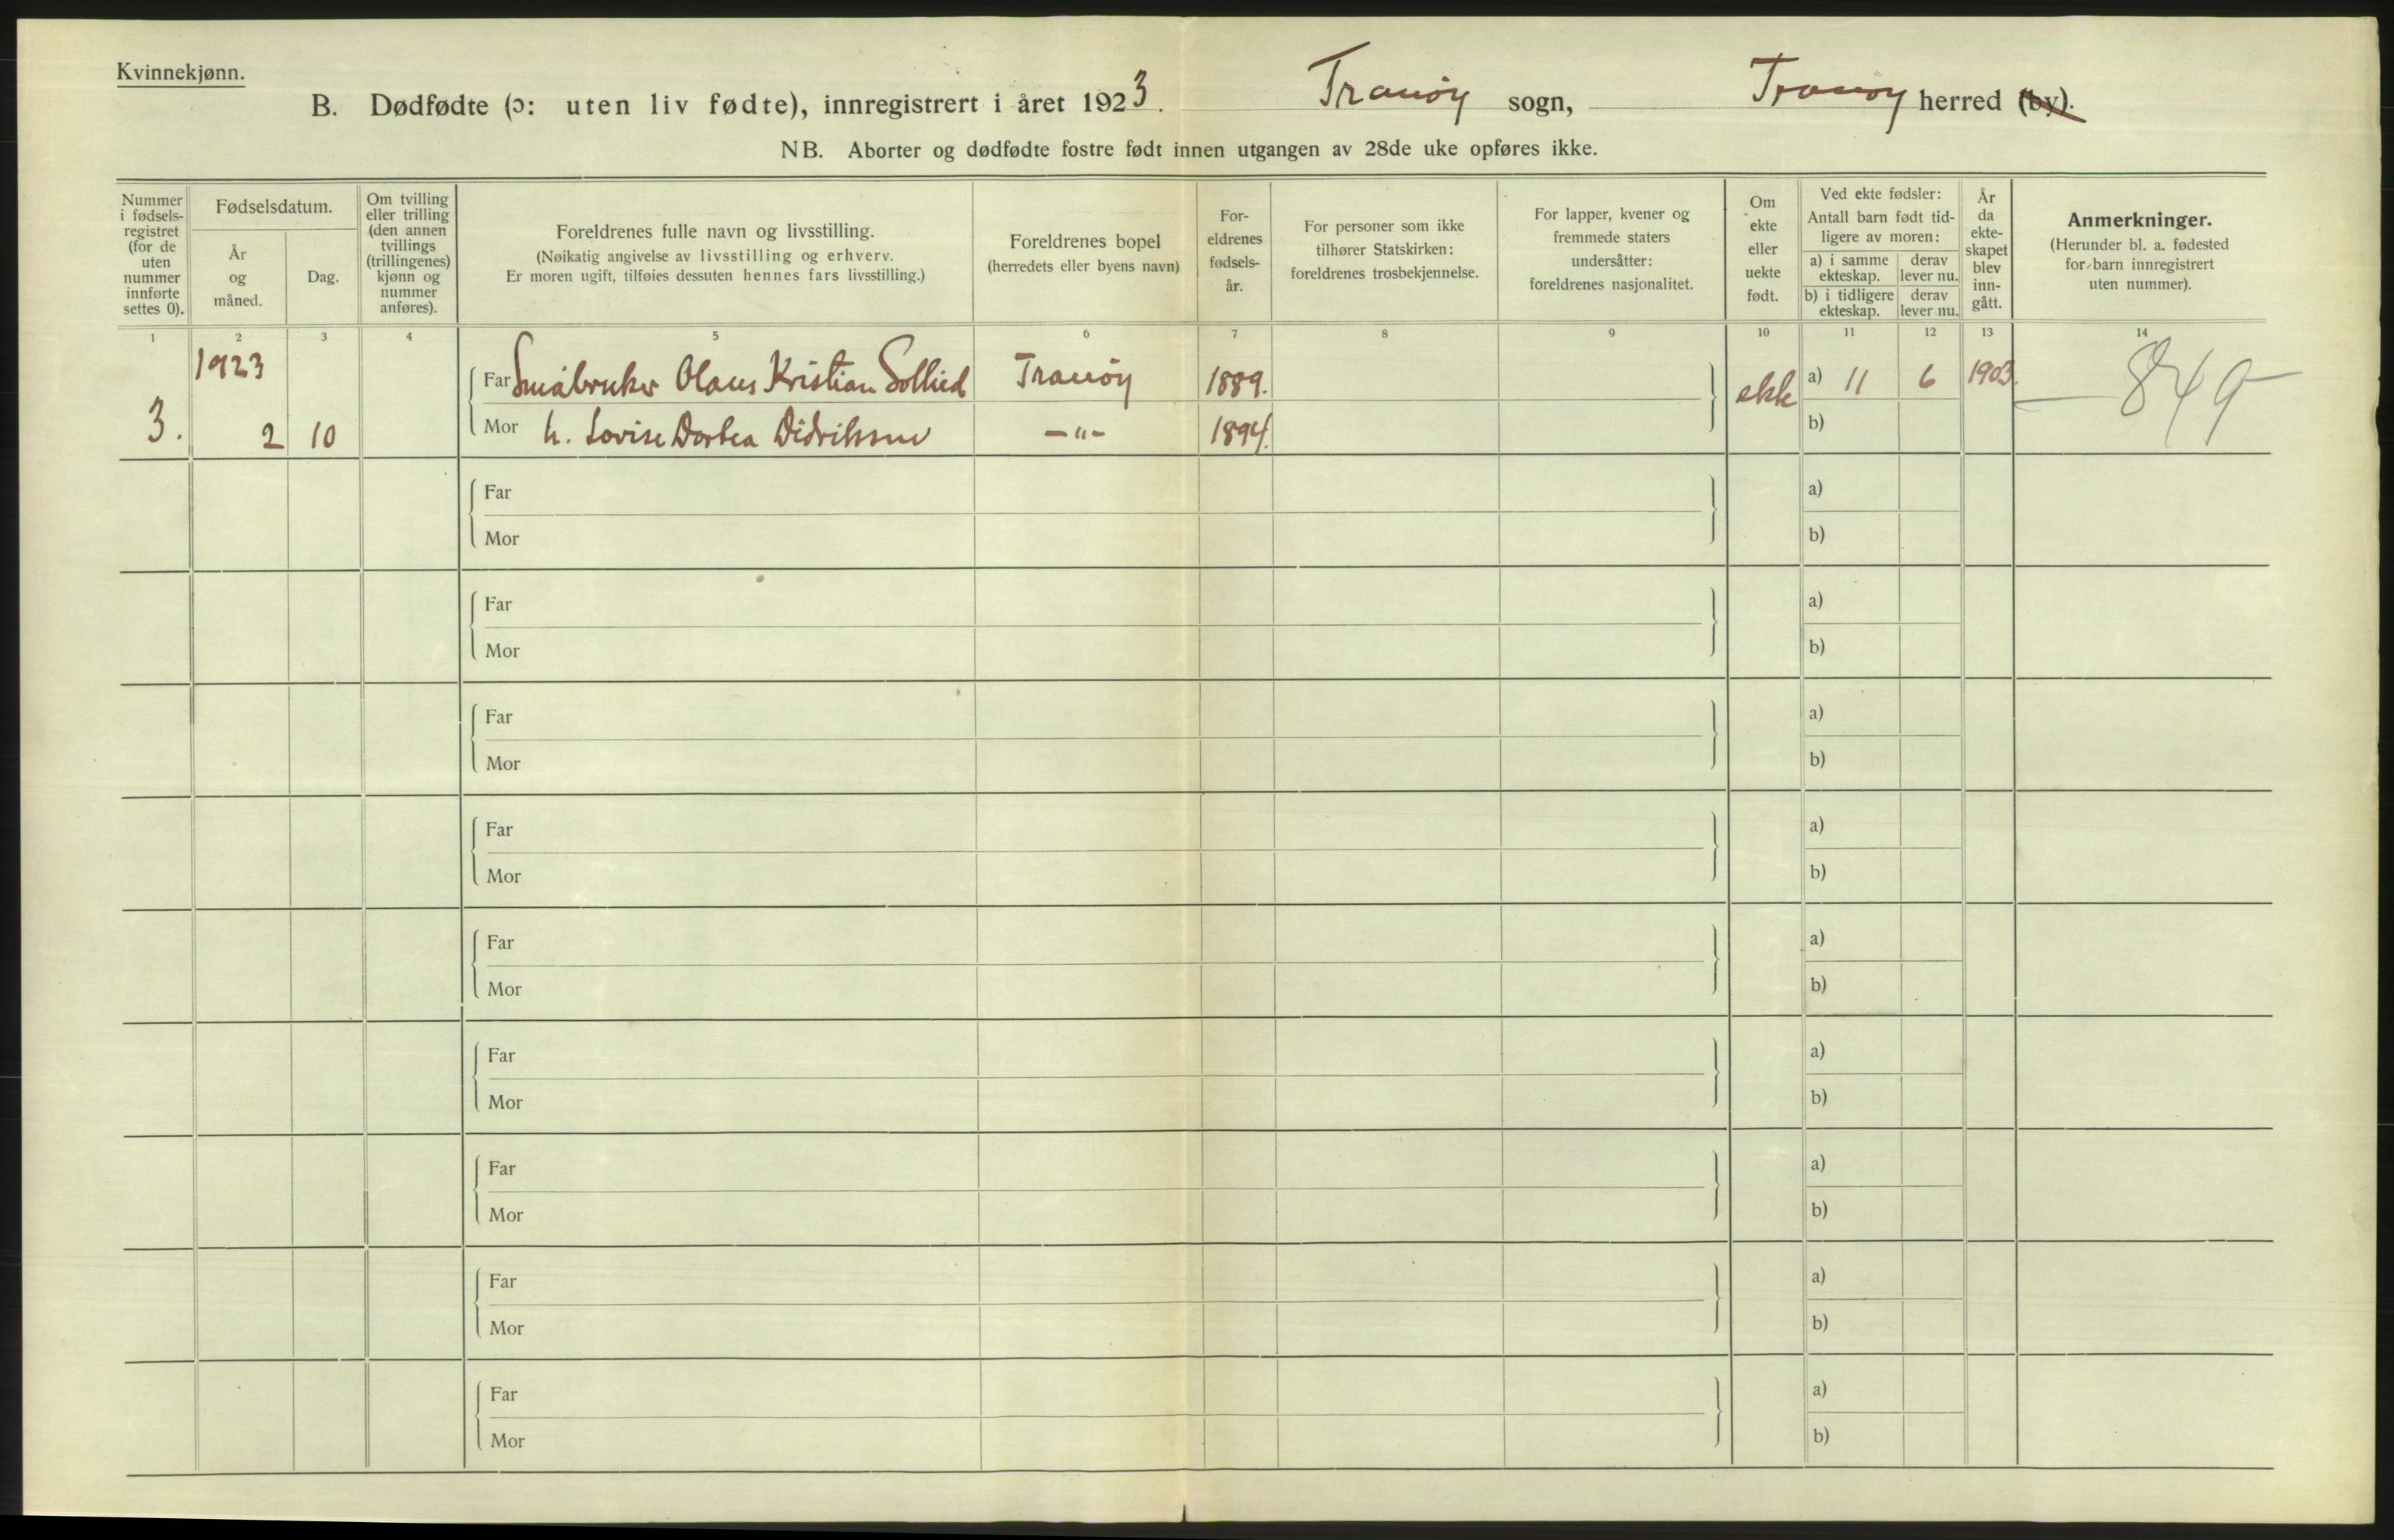 Kvinnekjønn.
B. Dødfødte (ɔ: uten liv fødte), innregistrert i året 1923. Tranöy sogn, Tranöy herred (by).
NB. Aborter og dødfødte fostre født innen utgangen av 28de uke opføres ikke.
Nummer i fødsels- registret (for de uten nummer innførte settes 0).
Fødselsdatum.
År og måned.
Dag.
Om tvilling eller trilling (den annen tvillings (trillingenes) kjønn og nummer anføres).
Foreldrenes fulle navn og livsstilling.
(Nøikatig angivelse av livsstilling og erhverv.
Er moren ugift, tilføies dessuten hennes fars livsstilling.)
Foreldrenes bopel
(herredets eller byens navn)
For- eldrenes fødsels- år.
For personer som ikke tilhører Statskirken: foreldrenes trosbekjennelse.
For lapper, kvener og fremmede staters undersåtter: foreldrenes nasjonalitet.
Om ekte eller uekte født.
Ved ekte fødsler:
Antall barn født tid- ligere av moren:
a) i samme ekteskap.
derav lever nu.
b) i tidligere ekteskap.
derav lever nu.
År da ekte- skapet blev inn- gått.
Anmerkninger.
(Herunder bl. a. fødested for barn innregistrert uten nummer).
1 2 3 4 5 6 7 8 9 10 11 12 13 14
1923
Far Småbruker Olaus Kristian Sollied Tranöy 1889. ekte a) 11 6 1903. 849
3. 2 10 Mor h. Lovise Dortea Didriksen -"- 1894. b)
Far a)
Mor b)
Far a)
Mor b)
Far a)
Mor b)
Far a)
Mor b)
Far a)
Mor b)
Far a)
Mor b)
Far a)
Mor b)
Far a)
Mor b)
Far a)
Mor b)